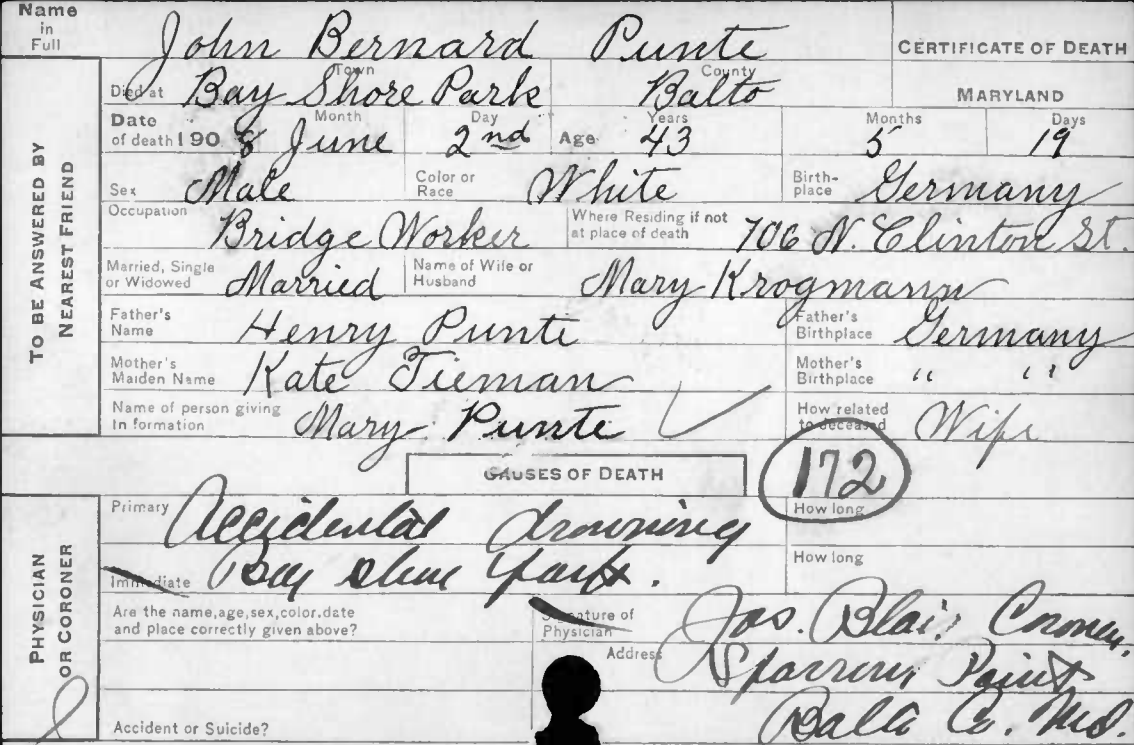 Name in Full John Bernard Punte CERTIFICATE OF DEATH
Died at Bay Shore Park Town Balto County MARYLAND
Date of death 1908 June Month 2nd Day Age 43 Years 5 Months 19 Days
Sex Male Color or Race White Birth-place Germany
Occupation Bridge Worker Where Residing if not at place of death 706 N. Clinton St.
Married, Single or Widowed Married Name of Wife or Husband Mary Krogmann
Father's Name Henry Punte Father's Birthplace Germany
Mother's Maiden Name Kate Tieman Mother's Birthplace " "
Name of person giving In formation Mary Punte How related to deceased Wife
TO BE ANSWERED BY NEAREST FRIEND
CAUSES OF DEATH 172
Primary Accidental drowning How long
Immediate Bay Shore Park. How long
Are the name, age, sex, color, date and place correctly given above? Signature of Physician Jos. Blair Coroner,
Address Sparrows Point
Accident or Suicide? Balto Co. Md.
PHYSICIAN OR CORONER